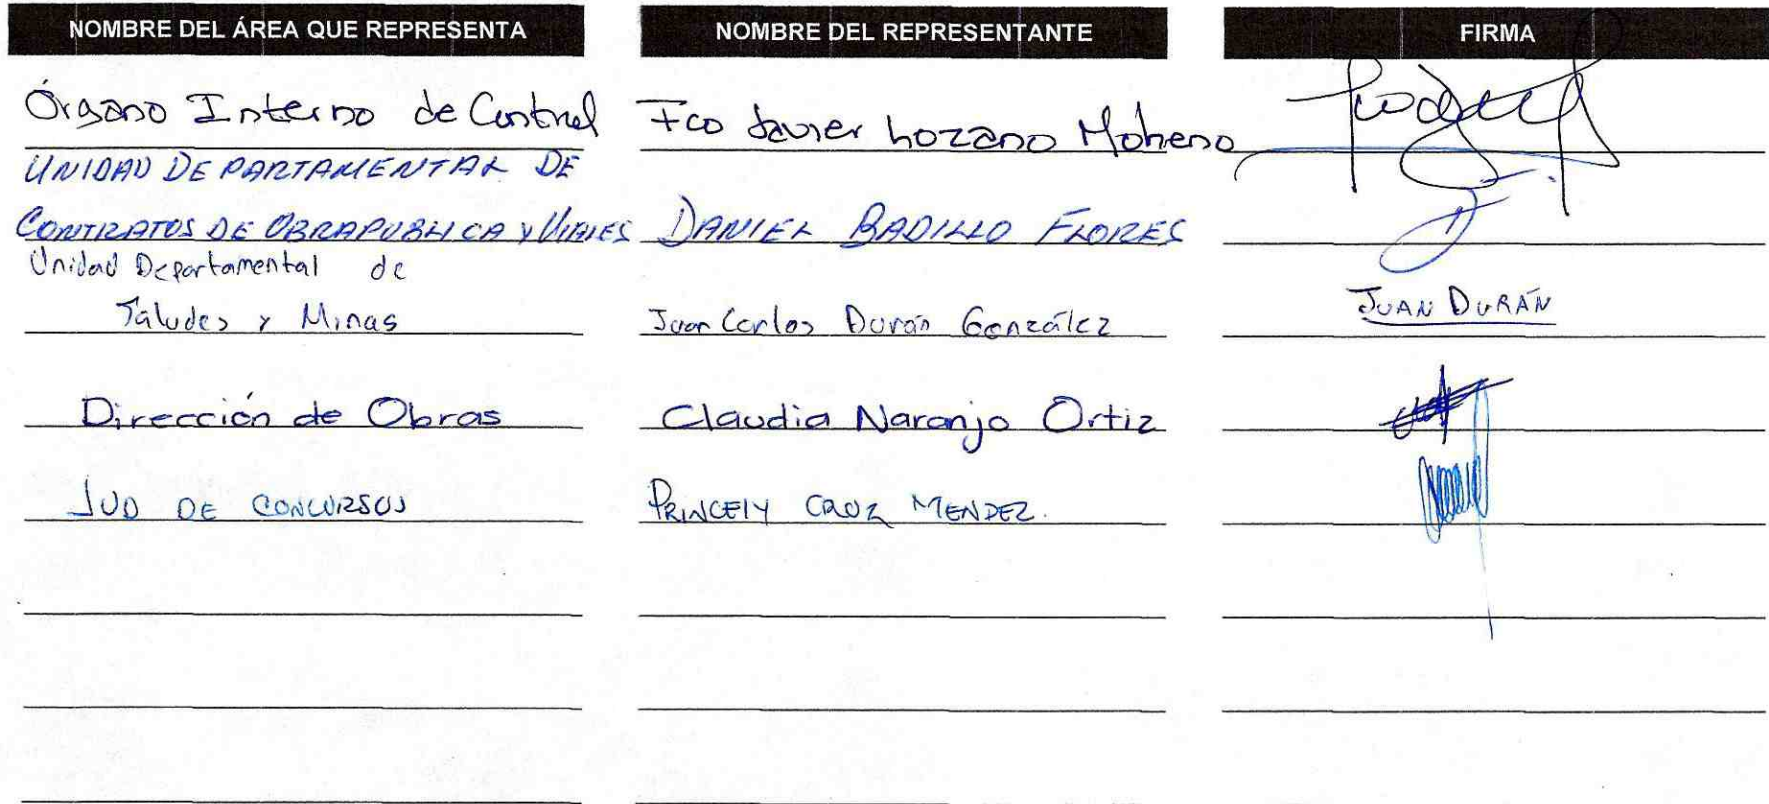 NOMBRE DEL ÁREA QUE REPRESENTA NOMBRE DEL REPRESENTANTE FIRMA
Órgano Interno de Control Fco Javier Lozano Moreno
UNIDAD DEPARTAMENTAL DE
CONTRATOS DE OBRA PUBLICA Y VIALES DANIEL BADILLO FLORES
Unidad Departamental de
Taludes y Minas Juan Carlos Durán González JUAN DURÁN
Dirección de Obras Claudia Naranjo Ortiz
JUD DE CONCURSOS PRINCELY CRUZ MENDEZ.